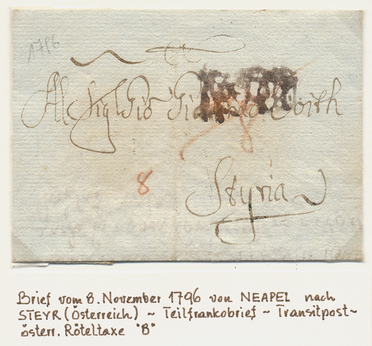 1796
Al Sig. Gio
Styria
8
Brief vom 8. November 1796 von NEAPEL nach
STEYR (Österreich) ~ Teilfrankobrief ~ Transitpost~
österr. Röteltaxe "8"